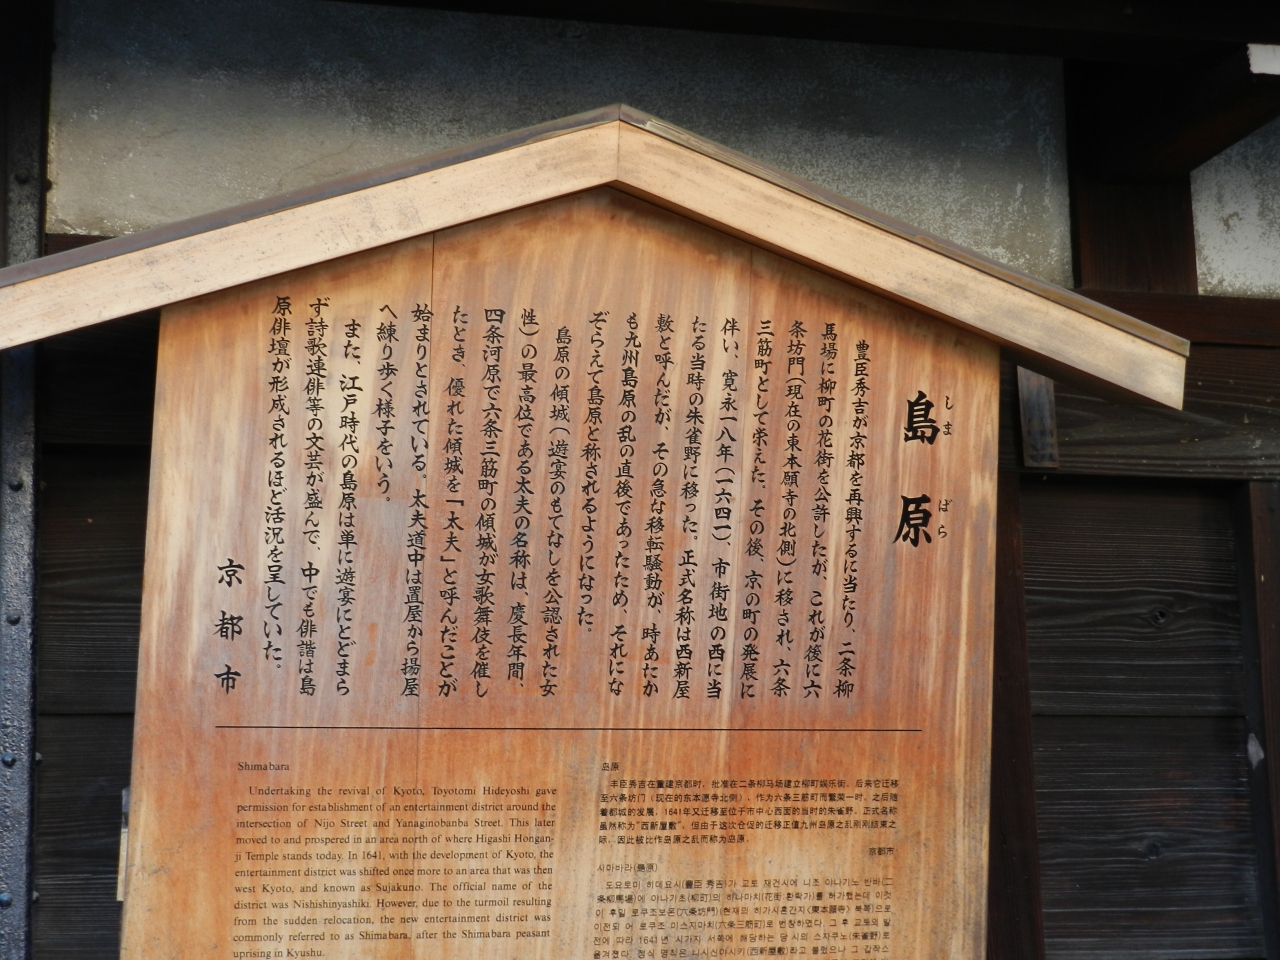 島原
しまばら
豊臣秀吉が京都を再興するに当たり、二条柳
馬場に柳町の花街を公許したが、これが後に六
条坊門（現在の東本願寺の北側）に移され、六条
三筋町として栄えた。その後、京の町の発展に
伴い、寛永一八年（一六四一）、市街地の西に当
たる当時の朱雀野に移った。正式名称は西新屋
敷と呼んだが、その急な移転騒動が、時あたか
も九州島原の乱の直後であったため、それにな
ぞらえて島原と称されるようになった。
島原の傾城（遊宴のもてなしを公認された女
性）の最高位である太夫の名称は、慶長年間、
四条河原で六条三筋町の傾城が女歌舞伎を催し
たとき、優れた傾城を「太夫」と呼んだことが
始まりとされている。太夫道中は置屋から揚屋
へ練り歩く様子をいう。
また、江戸時代の島原は単に遊宴にとどまら
ず詩歌連俳等の文芸が盛んで、中でも俳諧は島
原俳壇が形成されるほど活況を呈していた。
京都市
Shimabara
Undertaking the revival of Kyoto, Toyotomi Hideyoshi gave
permission for establishment of an entertainment district around the
intersection of Nijo Street and Yanaginobanba Street. This later
moved to and prospered in an area north of where Higashi Hongan-
ji Temple stands today. In 1641, with the development of Kyoto, the
entertainment district was shifted once more to an area that was then
west Kyoto, and known as Sujakuno. The official name of the
district was Nishishinyashiki. However, due to the turmoil resulting
from the sudden relocation, the new entertainment district was
commonly referred to as Shimabara, after the Shimabara peasant
uprising in Kyushu.
岛原
丰臣秀吉在重建京都时，批准在二条柳马场建立柳町娱乐街。后来它迁移
至六条坊门（现在的东本愿寺北侧），作为六条三筋町而繁荣一时。之后随
着都城的发展，1641年又迁移至位于市中心西面的当时的朱雀野。正式名称
虽然称为“西新屋敷”，但由于这次仓促的迁移正值九州岛原之乱刚刚结束之
际，因此被比作岛原之乱而称为岛原。
京都市
시마바라(島原)
도요토미 히데요시(豊臣 秀吉)가 교토 재건시에 니조 야나기노 반바(二
条柳馬場)에 야나기초(柳町)의 하나마치(花街 환락가)를 허가했는데 이것
이 후일 로쿠조보몬(六条坊門)(현재의 히가시혼간지《東本願寺》 북쪽)으로
이전되어 로쿠조 미스지마치(六条三筋町)로 번창하였다. 그 후 교토의 발
전에 따라 1641년 시가지 서쪽에 해당하는 당시의 스자쿠노(朱雀野)로
옮겨졌다. 정식 명칭은 니시신야시키(西新屋敷)라고 불렀으나 그 갑작스